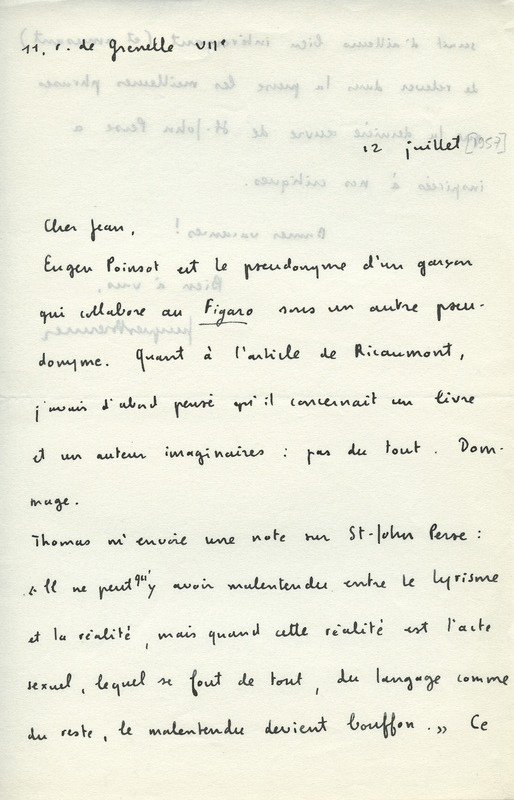 11, r. de Grenelle VIIe
12 juillet [1957]
Cher Jean,
Eugen Poinsot est le pseudonyme d'un garçon
qui collabore au Figaro sous un autre pseu-
donyme. Quant à l'article de Ricaumont,
j'avais d'abord pensé qu'il concernait un livre
et un auteur imaginaires : pas du tout. Dom-
mage.
Thomas m'envoie une note sur St-John Perse :
« Il ne peut qu'y avoir malentendu entre le lyrisme
et la réalité, mais quand cette réalité est l'acte
sexuel, lequel se fout de tout, du langage comme
du reste, le malentendu devient bouffon. » Ce